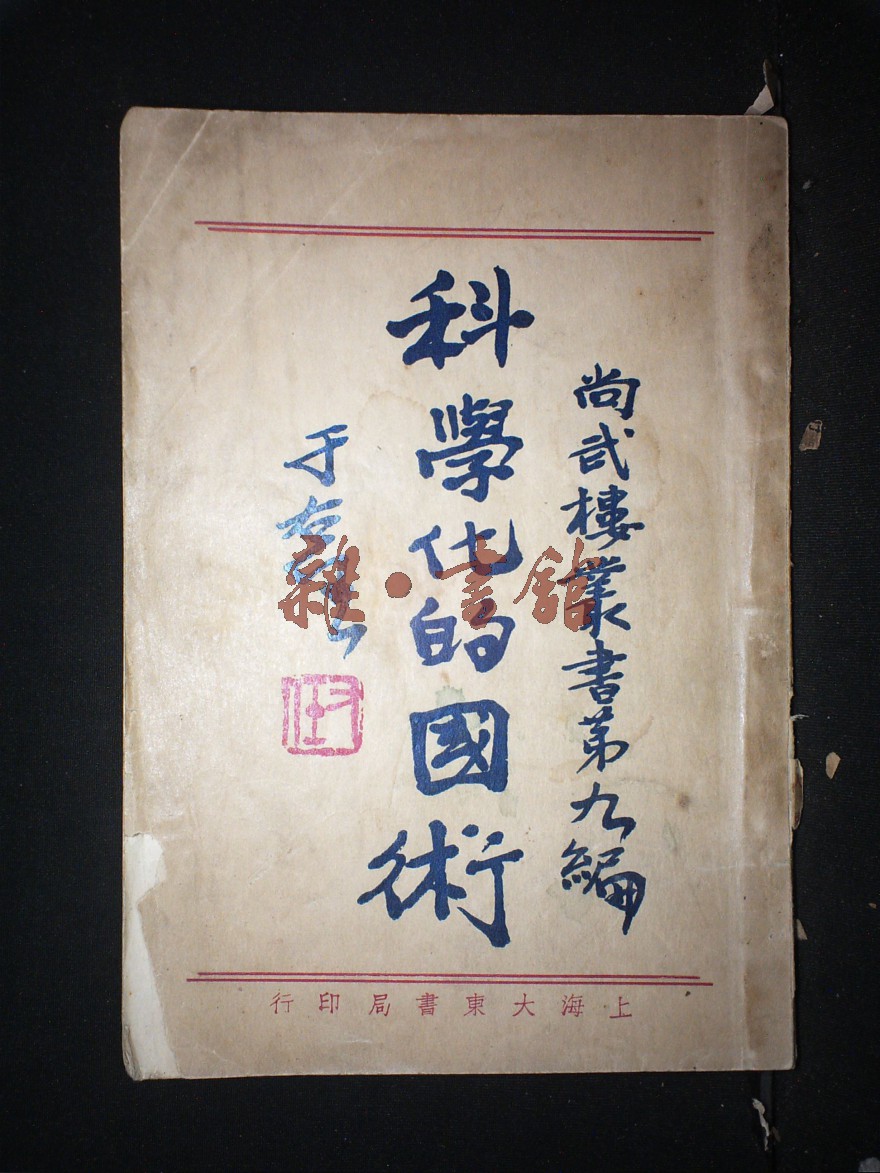 尚武樓叢書第九編
科學化的國術
于右任
上海大東書局印行
雜·書館